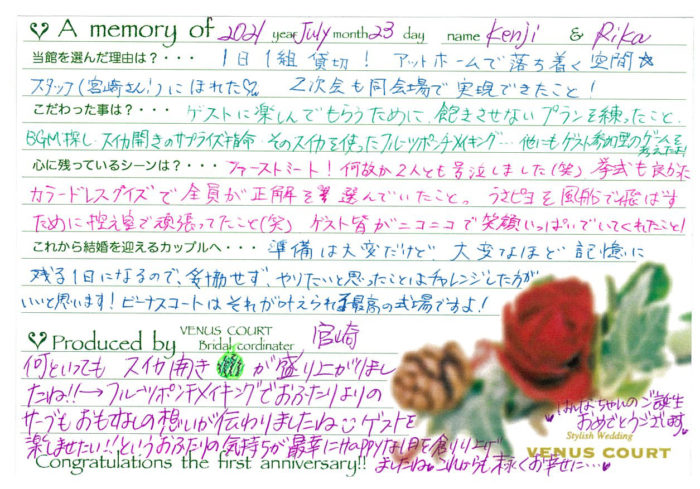 A memory of 2021 year July month 23 day name Kenji & Rika
当館を選んだ理由は?・・・ 1日1組貸切! アットホームで落ち着く空間☆
スタッフ(宮崎さん!)にほれた♡ 2次会も同会場で実現できたこと!
こだわった事は?・・・ ゲストに楽しんでもらうために、飽きさせないプランを練ったこと。
BGM探し、スイカ開きのサプライズ指命、そのスイカを使ったフルーツポンチメイキング…他にもゲスト参加型のゲームを考えたよ!
心に残っているシーンは?・・・ ファーストミート!何故か2人とも号泣しました(笑) 挙式も良かった
カラードレスクイズで全員が正解を選んでいたこと。 うさピヨを風船で飛ばす
ために控え室で頑張ってたこと(笑) ゲスト皆がニコニコで笑顔いっぱいでいてくれたこと!
これから結婚を迎えるカップルへ・・・ 準備は大変だけど、大変なほど記憶に
残る1日になるので、妥協せず、やりたいと思ったことはチャレンジした方が
いいと思います!ビーナスコートはそれが叶えられる最高の式場ですよ!
Produced by VENUS COURT Bridal cordinater 宮崎
何といっても スイカ開き が盛り上がりまし
たね!!→フルーツポンチメイキングでおふたりよりの
サーブもおもてなしの想いが伝わりましたね ゲストを
楽しませたい!!というおふたりの気持ちが最幸にHappyな1日を創り上げ
ましたね♥これからも末永くお幸せに…♥
Congratulations the first anniversary!!
はんなちゃんのご誕生
おめでとうございます
Stylish Wedding
VENUS COURT